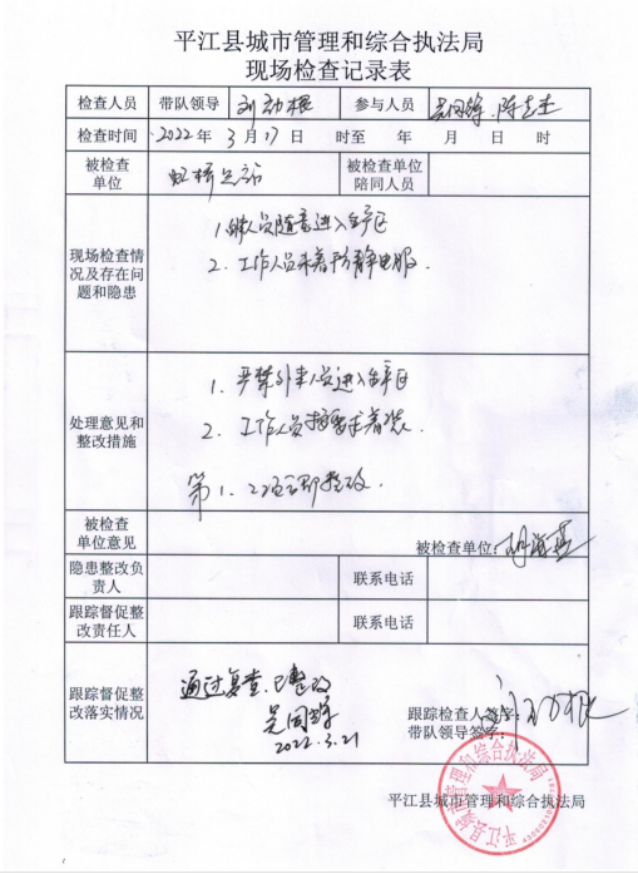 平江县城市管理和综合执法局
现场检查记录表
检查人员 带队领导 刘劲根 参与人员 吴同辉、陈志杰
检查时间 2022年 3月17日 时至 年 月 日 时
被检查单位 虹桥 站 被检查单位陪同人员
现场检查情况及存在问题和隐患
1. 人员随意进入生产区
2. 工作人员未着防静电服.
处理意见和整改措施
1. 严禁外来人员进入生产区
2. 工作人员按要求着装.
第1、2项立即整改.
被检查单位意见
被检查单位:
隐患整改负责人 联系电话
跟踪督促整改责任人 联系电话
跟踪督促整改落实情况
通过复查,已整改
吴同辉
2022.3.21
跟踪检查人签字: 刘劲根
带队领导签字:
平江县城市管理和综合执法局
平江县城市管理和综合执法局